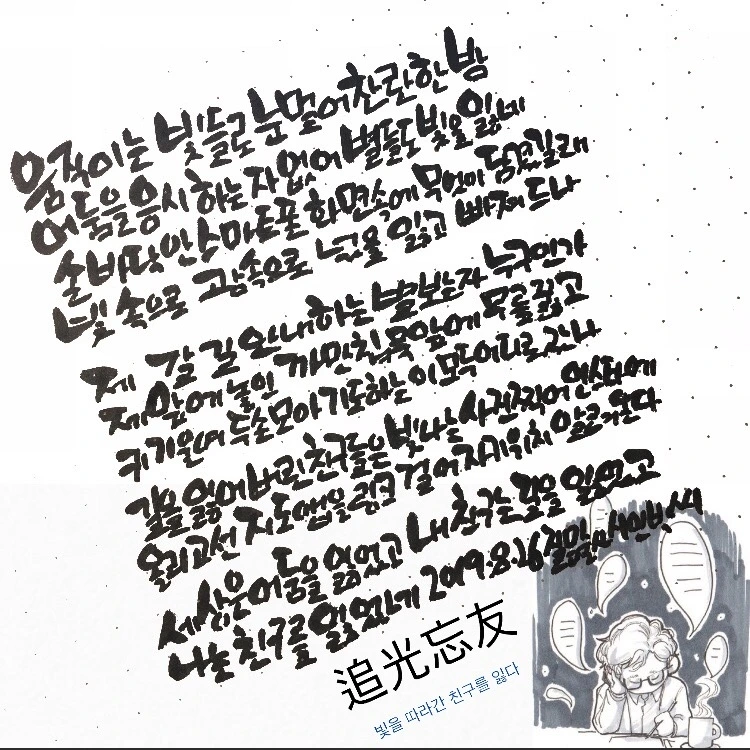 움직이는 빛들로 눈멀어 찬란한 밤
어둠을 응시하는 자 없어 별들도 빛을 잃네
손바닥 안 스마트폰 화면 속에 무엇이 담겼길래
빛 속으로 그 속으로 넋을 잃고 빠져드나
제 갈 길 안내하는 별 보는 자 누구인가
제 앞에 놓인 까만 침묵 앞에 무릎 꿇고
귀 기울여 두 손 모아 기도하는 이 모두 어디로 갔나
길을 잃어버린 친구들은 빛나는 사진 찍어 인스타에
올리고선 지도앱을 링크 걸어 자기 위치 알려온다
세상은 어둠을 잃었고 내 친구는 길을 잃었고
나는 친구를 잃었네 2019.8.26
追光忘友
빛을 따라간 친구를 잃다